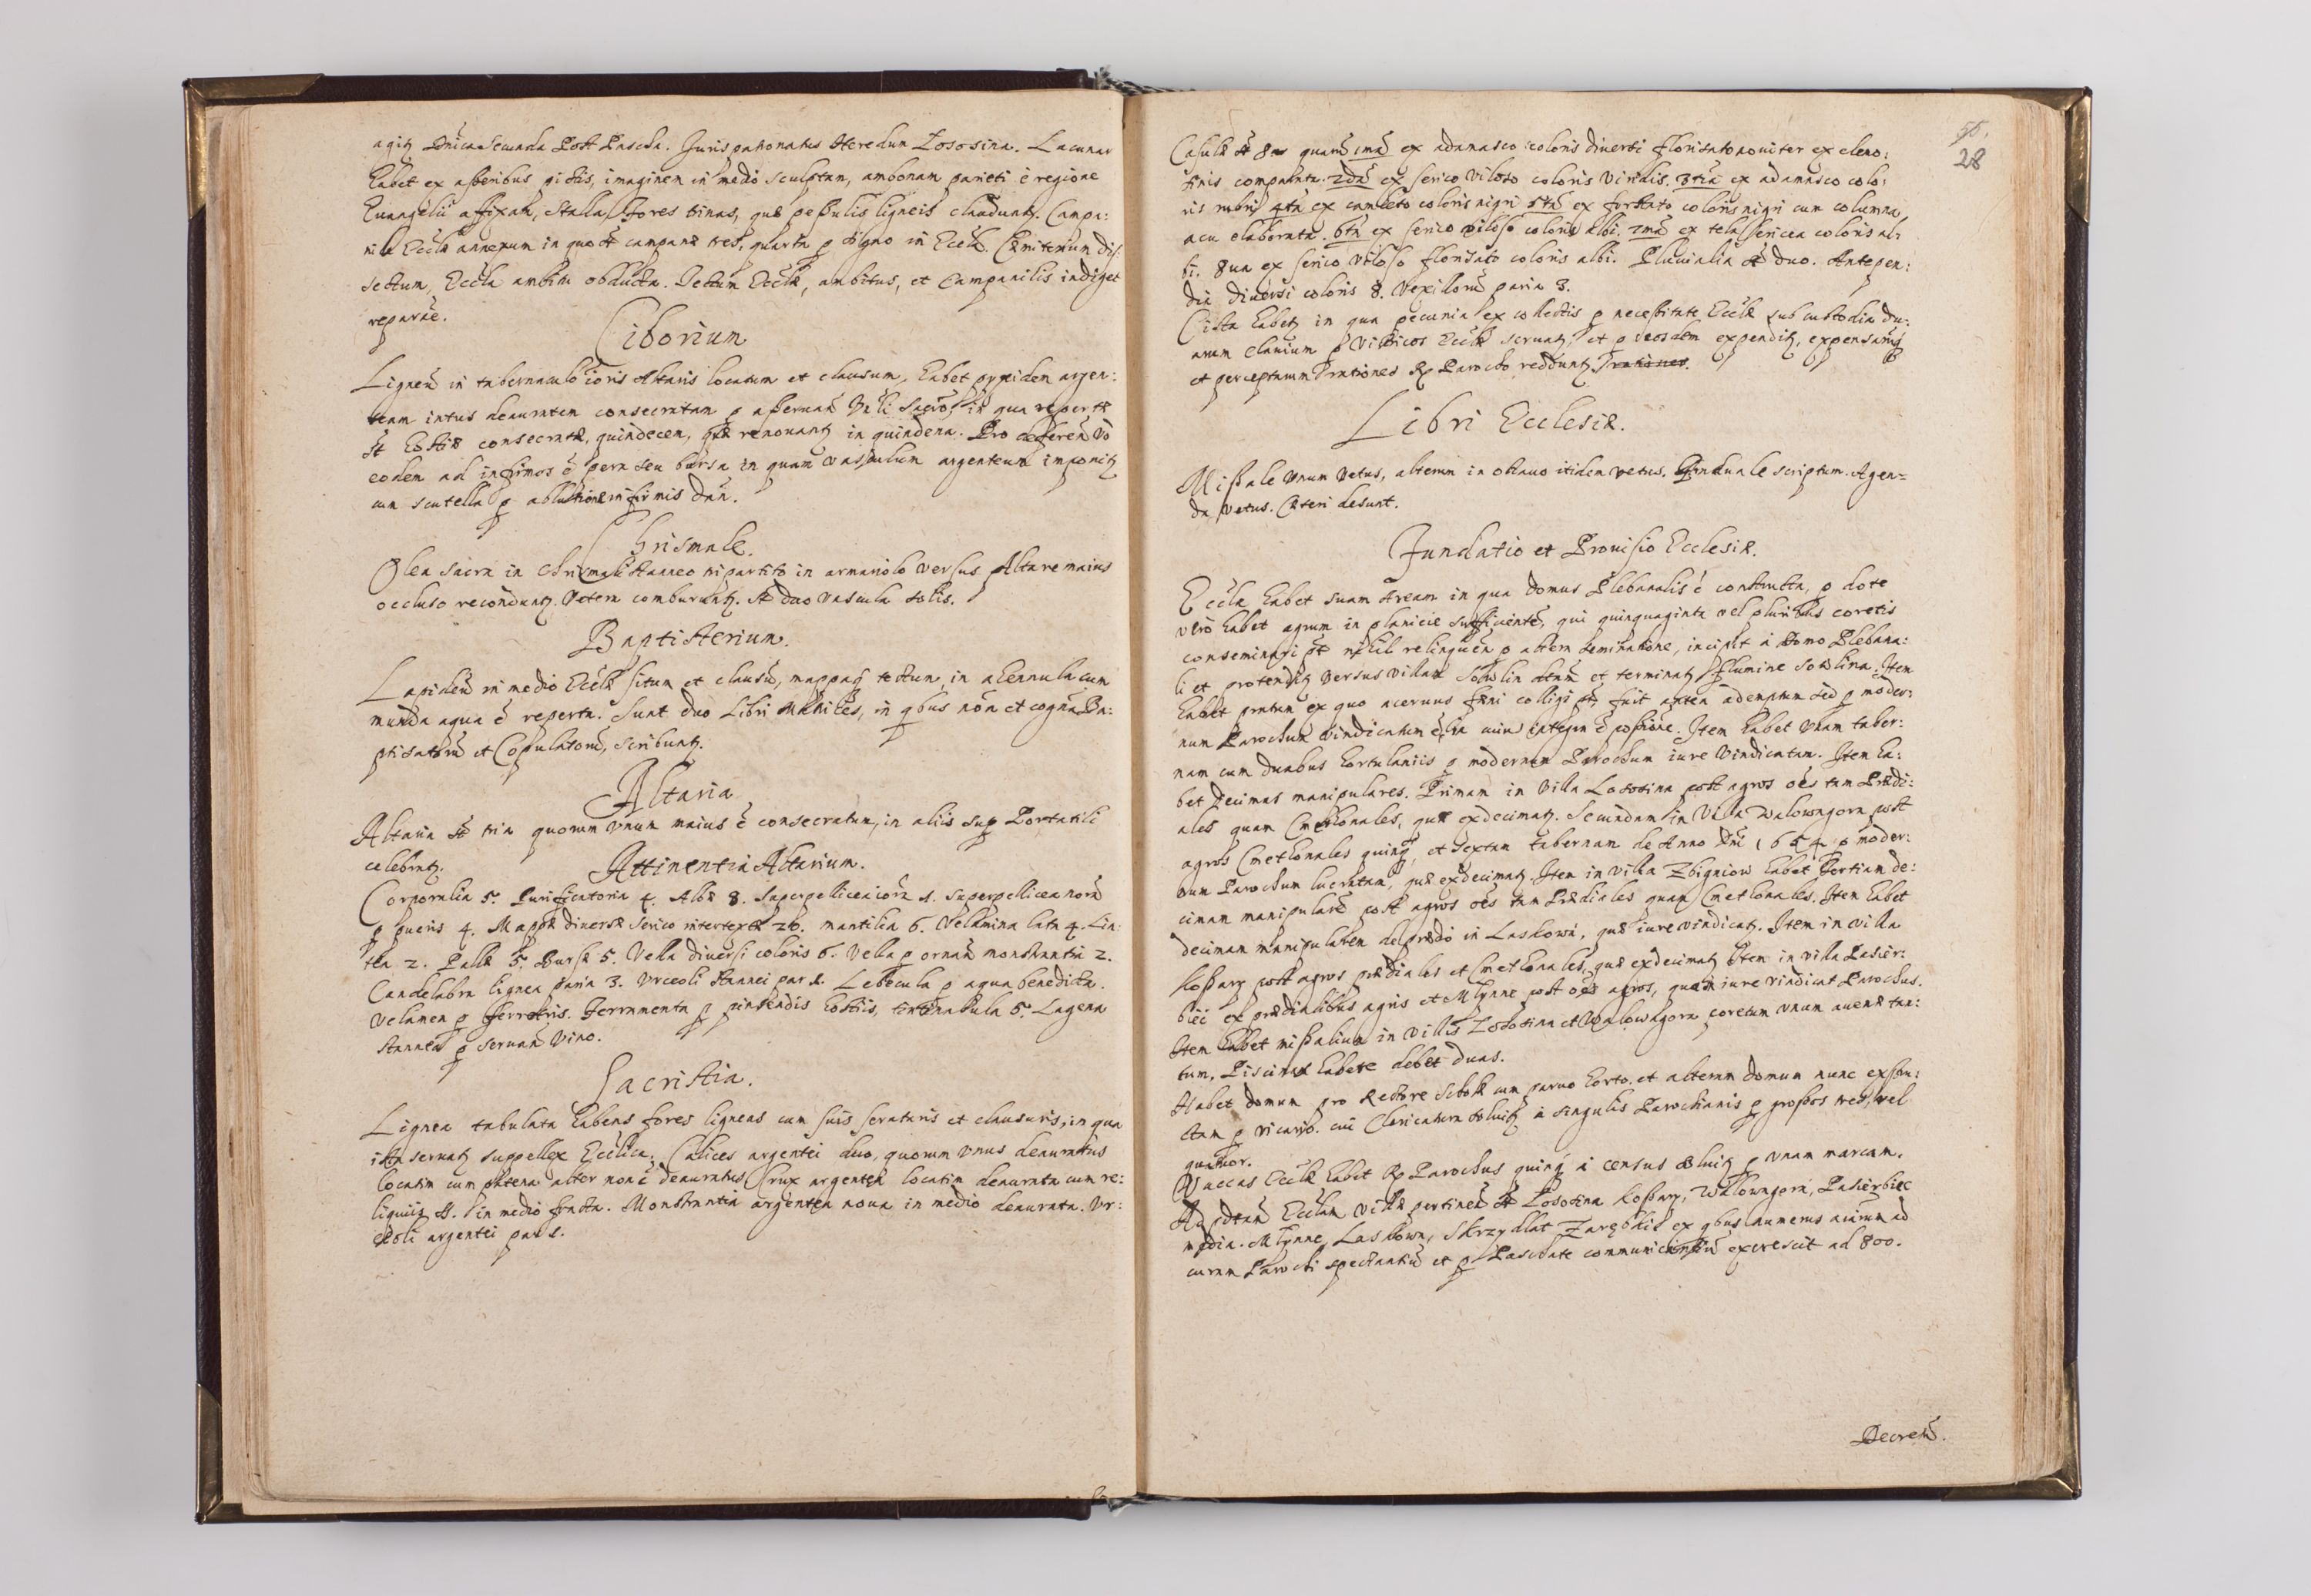 agit Dnica Secunda Post Pascha. Juris patronatus Heredum Łososina. Lacunar
habet ex asseribus pictis, imaginem in medio sculptam, ambonam parieti è regione
Euangelii affixam, Stalla, Fores binas, quæ pessulis ligneis claudunt. Campa:
nile Ecclæ annexum in quo st campanæ tres, quarta p signo in Eccla. Cæmiterium dis:
sectum, Eccla ambitu obducta. Tectum Ecclæ, ambitus, et Campanilis indiget
reparãe.
Ciborium
Ligneũ in tabernaculo ioris Altaris locatum et clausum, habet pyxidem argen:
team intus deauratam consecratam p asseruan Vnli Sacro, in qua repertæ
st hostiæ consecratæ, quindecem, quæ renouant in quindena. Pro deferen Vo
eodem ad infirmos ẽ pera seu bursa in quam vasculum argenteum imponit
cum scutella p ablutione infirmis dan.
Chrismale.
Olea sacra in chrismali stanneo tripartito in armariolo versus Altare maius
occluso recondunt. Vetera comburunt. St duo vascula solis.
Baptisterium.
Lapideũ in medio Ecclæ situm et clausũ, mappaq tectum, in acennula cum
munda aqua ẽ reperta. Sunt duo Libri, in qbus noã et cognã Ba:
ptisatorũ et Copulatorũ, scribunt.
Altaria
Altaria st tria quorum vnum maius ẽ consecratum, in aliis sup Portatili
celebrat.
Attinentia Altarium.
Corporalia 5. Purificatoria 4. Albæ 8. Superpellicea iora 1. Superpellicea nora
p pueris 4. Mappæ diuersæ serico intertextæ 26. mantilia 6. Velamina lata 4. Lin
tea 2. Pallæ 5. Bursæ 5. Vela diuersi coloris 6. Vela p ornan monstrantia 2.
Candelabra lignea paria 3. Vrceoli stannei par 1. Lebecula p aqua benedicta.
Velamen p ferretris. Ferramenta p pinsendis hostiis, tintinabula 5. Lagena
stannea p seruan Vino.
Sacristia.
Lignea tabulata habens fores ligneas cum suis seraturis et clausuris, in qua
ista seruat suppellex Ecclica. Calices argentei duo, quorum vnus deauratus
locatim cum patena alter non ẽ deauratus Crux argentea locatim deaurata cum re:
liquiis SS. in medio fracta. Monstrantia argentea noua in medio deaurata. Vr:
ceoli argentei par 1.
55.
28
Casulæ st 8to quarũ 1ma ex adamasco coloris diuersi floritato nouiter ex elemo:
sinis comparata. 2da ex serico viloso coloris viridis. 3tia ex adamasco colo:
ris rubri 4ta ex camleto coloris nigri 5ta ex forstato coloris nigri cum columna,
acu elaborata. 6ta ex serico viloso coloris albi. 7ma ex tela sericea coloris al:
bi. 8ua ex serico viloso floritato coloris albi. Pluuialia st duo. Antepen:
dia diuersi coloris 8. Vexillorũ paria 3.
Cista habet in qua pecunia ex collectis p necessitate Ecclæ sub custodia du:
arum clauium p Vitricos Ecclæ seruat, et p eosdem expendit, expensarũq
et perceptarum rationes Rp Parocho reddunt rationes.
Libri Ecclesiæ.
Missale vnum vetus, alterum in octauo itidem vetus. Graduale scriptum. Agen=
da vetus. Cæteri desunt.
Fundatio et Prouisio Ecclesiæ.
Eccla habet suam Aream in qua domus Plebanalis ẽ constructa, p dote
vero habet agrum in planicie sufficientẽ, qui quinquaginta vel pluribus coretis
conseminari pt nihil relinquen p altera seminatione, incipit à Domo Plebana:
li et protendit versus villam et terminat flumine Sowlina. Item
habet pratum ex quo aceruus fæni colligi pt, fuit antea ademptum sed p moder:
num Parochum vindicatum ẽ, possione. Item habet vnam taber:
nam cum duabus hortulaniis p modernum Parochum iure vindicatam. Item ha:
bet decimas manipulares. Primam in Villa Lososina post agros oẽs tam Prædi:
ales quam Cmethonales, quæ exdecimat. Secundam in Villa Walowagora post
agros Cmethonales quinq, et sextam tabernam de Anno Dni p moder:
num Parochum lucratam, quæ exdecimat. Item in villa Zbigniow habet Tertiam de:
cimam manipularẽ post agros oẽs tam Prædiales quam Cmethonales. Item habet
decimam manipularem de prædo in Laskowa, quæ iure vindicat. Item in villa
Kossary post agros prædiales et Cmethonales, quæ exdecimat Item in villa Pasier:
biec ex prædialibus agris et Mlynne post oẽs agros, quam iure vindicat Parochus.
Item habet missalium in villis Lososina et Walowagora coretum vnum auenæ tan:
tum. Piscinas habere debet duas.
Habet domum pro Rectore Scholæ cum paruo horto, et alteram domum nunc exstru:
ctam p vicario. cui Clericatura soluit à singulis Parochianis p grossos tres, vel
quatuor.
Vaccas Ecclæ habet Rp Parochus quinq à census soluit p vnam marcam.
Ad pdtam Ecclam villæ pertinen st Lososina Kossary, Walowagora, Pasierbiec
media. Mlynne, Laskowa, Skrzydlat Zarębkis ex qbus numerus aiarum ad
curam Parochi spectantiũ et p Paschate communicantiũ excrescit ad 800.
Decretũ.